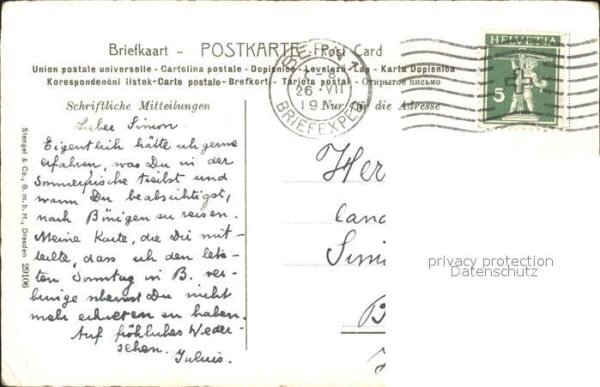 Briefkaart – POSTKARTE – Post Card
Union postale universelle – Cartolina postale – Dopisnice – Levelező-Lap – Karta Dopisnica
Korespondenční listek-Carte postale – Brefkort – Tarjeta postal – Открытое письмо
BERN 1
26. VII
19
BRIEFEXPED
HELVETIA
5
Schriftliche Mitteilungen
Nur für die Adresse
Lieber Simon
Eigentlich hätte ich gerne
erfahren, was Du in der
Sommerfrische treibst und
wann Du beabsichtigst,
nach Bönigen zu reisen.
Meine Karte, die Dir mit-
teilte, dass ich den letz-
ten Sonntag in B. ver-
bringe scheinst Du nicht
mehr erhalten zu haben.
Auf fröhliches Wieder-
sehen.
Her
cand
Sim
B
privacy protection
Datenschutz
Stengel & Co., G. m. b. H., Dresden 29106